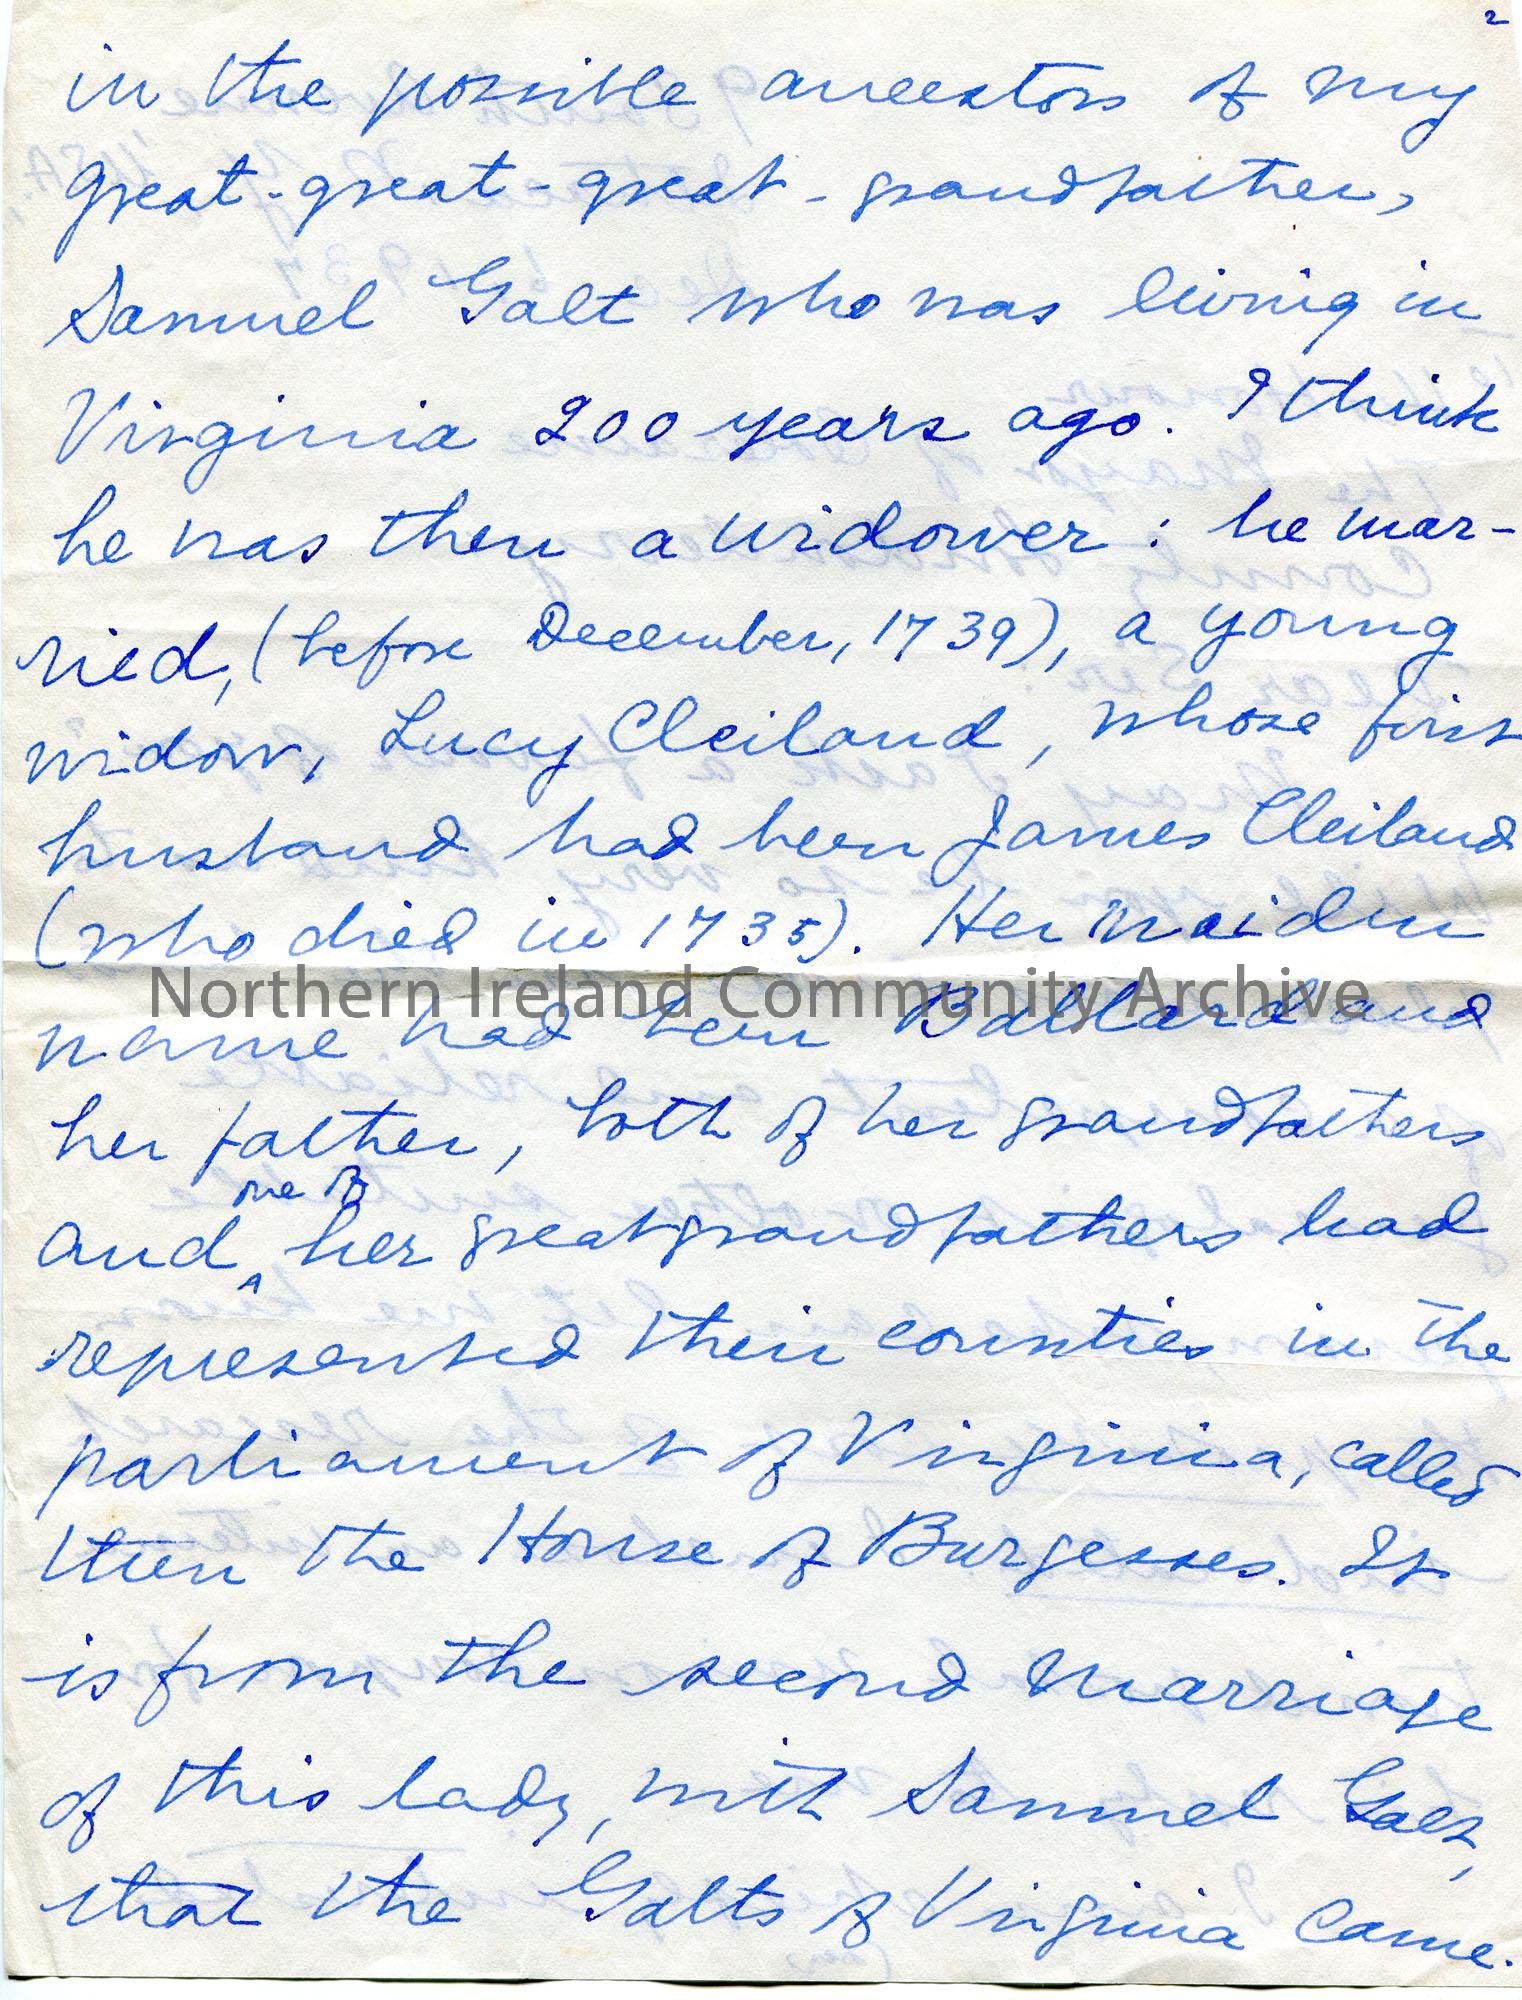 2
in the possible ancestors of my
great-great-great-grandfather,
Samuel Galt who was living in
Virginia 200 years ago. I think
he was then a widower: he mar-
ried, (before December, 1739), a young
widow, Lucy Cleiland, whose first
husband had been James Cleiland
(who died in 1735). Her maiden
Northern Ireland Community Archive
name had been Ballard and
her father, both of her grandfathers
one of
and ^ her greatgrandfathers had
represented their counties in the
parliament of Virginia, called
then the House of Burgesses. It
is from the second marriage
of this lady, with Samuel Galt,
that the Galts of Virginia came.